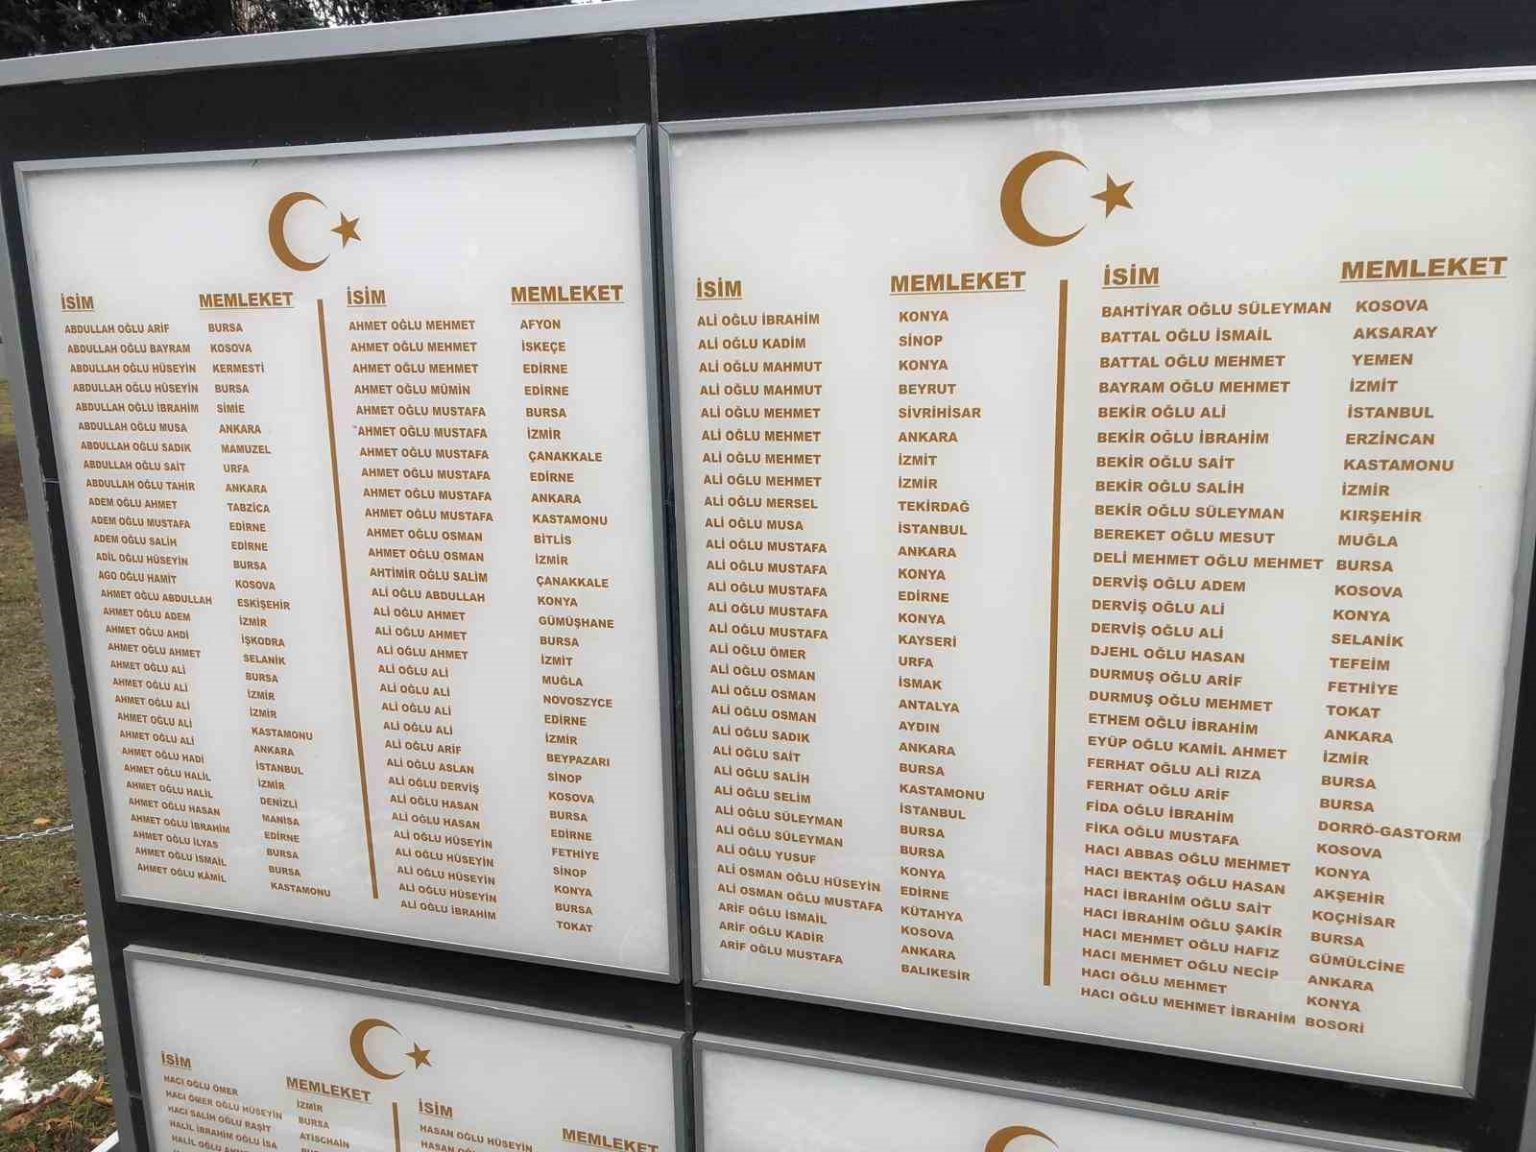 İSİM MEMLEKET
ABDULLAH OĞLU ARİF BURSA
ABDULLAH OĞLU BAYRAM KOSOVA
ABDULLAH OĞLU HÜSEYİN KERMESTİ
ABDULLAH OĞLU HÜSEYİN BURSA
ABDULLAH OĞLU İBRAHİM SİMİE
ABDULLAH OĞLU MUSA ANKARA
ABDULLAH OĞLU SADIK MAMUZEL
ABDULLAH OĞLU SAİT URFA
ABDULLAH OĞLU TAHİR ANKARA
ADEM OĞLU AHMET TABZİCA
ADEM OĞLU MUSTAFA EDİRNE
ADEM OĞLU SALİH EDİRNE
ADİL OĞLU HÜSEYİN BURSA
AGO OĞLU HAMİT KOSOVA
AHMET OĞLU ABDULLAH ESKİŞEHİR
AHMET OĞLU ADEM İZMİR
AHMET OĞLU AHDİ İŞKODRA
AHMET OĞLU AHMET SELANİK
AHMET OĞLU ALİ BURSA
AHMET OĞLU ALİ İZMİR
AHMET OĞLU ALİ İZMİR
AHMET OĞLU ALİ KASTAMONU
AHMET OĞLU ALİ ANKARA
AHMET OĞLU HADİ İSTANBUL
AHMET OĞLU HALİL İZMİR
AHMET OĞLU HALİL DENİZLİ
AHMET OĞLU HASAN MANİSA
AHMET OĞLU İBRAHİM EDİRNE
AHMET OĞLU ILYAS BURSA
AHMET OĞLU İSMAİL BURSA
AHMET OĞLU KAMİL KASTAMONU
İSİM MEMLEKET
AHMET OĞLU MEHMET AFYON
AHMET OĞLU MEHMET İSKEÇE
AHMET OĞLU MEHMET EDİRNE
AHMET OĞLU MÜMİN EDİRNE
AHMET OĞLU MUSTAFA BURSA
AHMET OĞLU MUSTAFA İZMİR
AHMET OĞLU MUSTAFA ÇANAKKALE
AHMET OĞLU MUSTAFA EDİRNE
AHMET OĞLU MUSTAFA ANKARA
AHMET OĞLU MUSTAFA KASTAMONU
AHMET OĞLU OSMAN BİTLİS
AHMET OĞLU OSMAN İZMİR
AHTİMİR OĞLU SALİM ÇANAKKALE
ALİ OĞLU ABDULLAH KONYA
ALİ OĞLU AHMET GÜMÜŞHANE
ALİ OĞLU AHMET BURSA
ALİ OĞLU AHMET İZMİT
ALİ OĞLU ALİ MUĞLA
ALİ OĞLU ALİ NOVOSZYCE
ALİ OĞLU ALİ EDİRNE
ALİ OĞLU ALİ İZMİR
ALİ OĞLU ARİF BEYPAZARI
ALİ OĞLU ASLAN SİNOP
ALİ OĞLU DERVİŞ KOSOVA
ALİ OĞLU HASAN BURSA
ALİ OĞLU HASAN EDİRNE
ALİ OĞLU HÜSEYİN FETHİYE
ALİ OĞLU HÜSEYİN SİNOP
ALİ OĞLU HÜSEYİN KONYA
ALİ OĞLU HÜSEYİN BURSA
ALİ OĞLU İBRAHİM TOKAT
İSİM MEMLEKET
ALİ OĞLU İBRAHİM KONYA
ALİ OĞLU KADİM SİNOP
ALİ OĞLU MAHMUT KONYA
ALİ OĞLU MAHMUT BEYRUT
ALİ OĞLU MEHMET SİVRİHİSAR
ALİ OĞLU MEHMET ANKARA
ALİ OĞLU MEHMET İZMİT
ALİ OĞLU MEHMET İZMİR
ALİ OĞLU MERSEL TEKİRDAĞ
ALİ OĞLU MUSA İSTANBUL
ALİ OĞLU MUSTAFA ANKARA
ALİ OĞLU MUSTAFA KONYA
ALİ OĞLU MUSTAFA EDİRNE
ALİ OĞLU MUSTAFA KONYA
ALİ OĞLU MUSTAFA KAYSERİ
ALİ OĞLU ÖMER URFA
ALİ OĞLU OSMAN İSMAK
ALİ OĞLU OSMAN ANTALYA
ALİ OĞLU OSMAN AYDIN
ALİ OĞLU SADIK ANKARA
ALİ OĞLU SAİT BURSA
ALİ OĞLU SALİH KASTAMONU
ALİ OĞLU SELİM İSTANBUL
ALİ OĞLU SÜLEYMAN BURSA
ALİ OĞLU SÜLEYMAN BURSA
ALİ OĞLU YUSUF KONYA
ALİ OSMAN OĞLU HÜSEYİN EDİRNE
ALİ OSMAN OĞLU MUSTAFA KÜTAHYA
ARİF OĞLU İSMAİL KOSOVA
ARİF OĞLU KADİR ANKARA
ARİF OĞLU MUSTAFA BALIKESİR
İSİM MEMLEKET
BAHTİYAR OĞLU SÜLEYMAN KOSOVA
BATTAL OĞLU İSMAİL AKSARAY
BATTAL OĞLU MEHMET YEMEN
BAYRAM OĞLU MEHMET İZMİT
BEKİR OĞLU ALİ İSTANBUL
BEKİR OĞLU İBRAHİM ERZİNCAN
BEKİR OĞLU SAİT KASTAMONU
BEKİR OĞLU SALİH İZMİR
BEKİR OĞLU SÜLEYMAN KIRŞEHİR
BEREKET OĞLU MESUT MUĞLA
DELİ MEHMET OĞLU MEHMET BURSA
DERVİŞ OĞLU ADEM KOSOVA
DERVİŞ OĞLU ALİ KONYA
DERVİŞ OĞLU ALİ SELANİK
DJEHL OĞLU HASAN TEFEİM
DURMUŞ OĞLU ARİF FETHİYE
DURMUŞ OĞLU MEHMET TOKAT
ETHEM OĞLU İBRAHİM ANKARA
EYÜP OĞLU KAMİL AHMET İZMİR
FERHAT OĞLU ALİ RIZA BURSA
FERHAT OĞLU ARİF BURSA
FİDA OĞLU İBRAHİM DORRÖ-GASTORM
FİKA OĞLU MUSTAFA KOSOVA
HACI ABBAS OĞLU MEHMET KONYA
HACI BEKTAŞ OĞLU HASAN AKŞEHİR
HACI İBRAHİM OĞLU SAİT KOÇHİSAR
HACI İBRAHİM OĞLU ŞAKİR BURSA
HACI MEHMET OĞLU HAFIZ GÜMÜLCİNE
HACI MEHMET OĞLU NECİP ANKARA
HACI OĞLU MEHMET KONYA
HACI OĞLU MEHMET İBRAHİM BOSORİ
İSİM MEMLEKET
HACI OĞLU ÖMER İZMİR
HACI ÖMER OĞLU HÜSEYİN BURSA
HACI SALİH OĞLU RAŞİT ATİSCHAİN
HALİL İBRAHİM OĞLU İSA
HALİL OĞLU
İSİM MEMLEKET
HASAN OĞLU HÜSEYİN
HASAN OĞLU